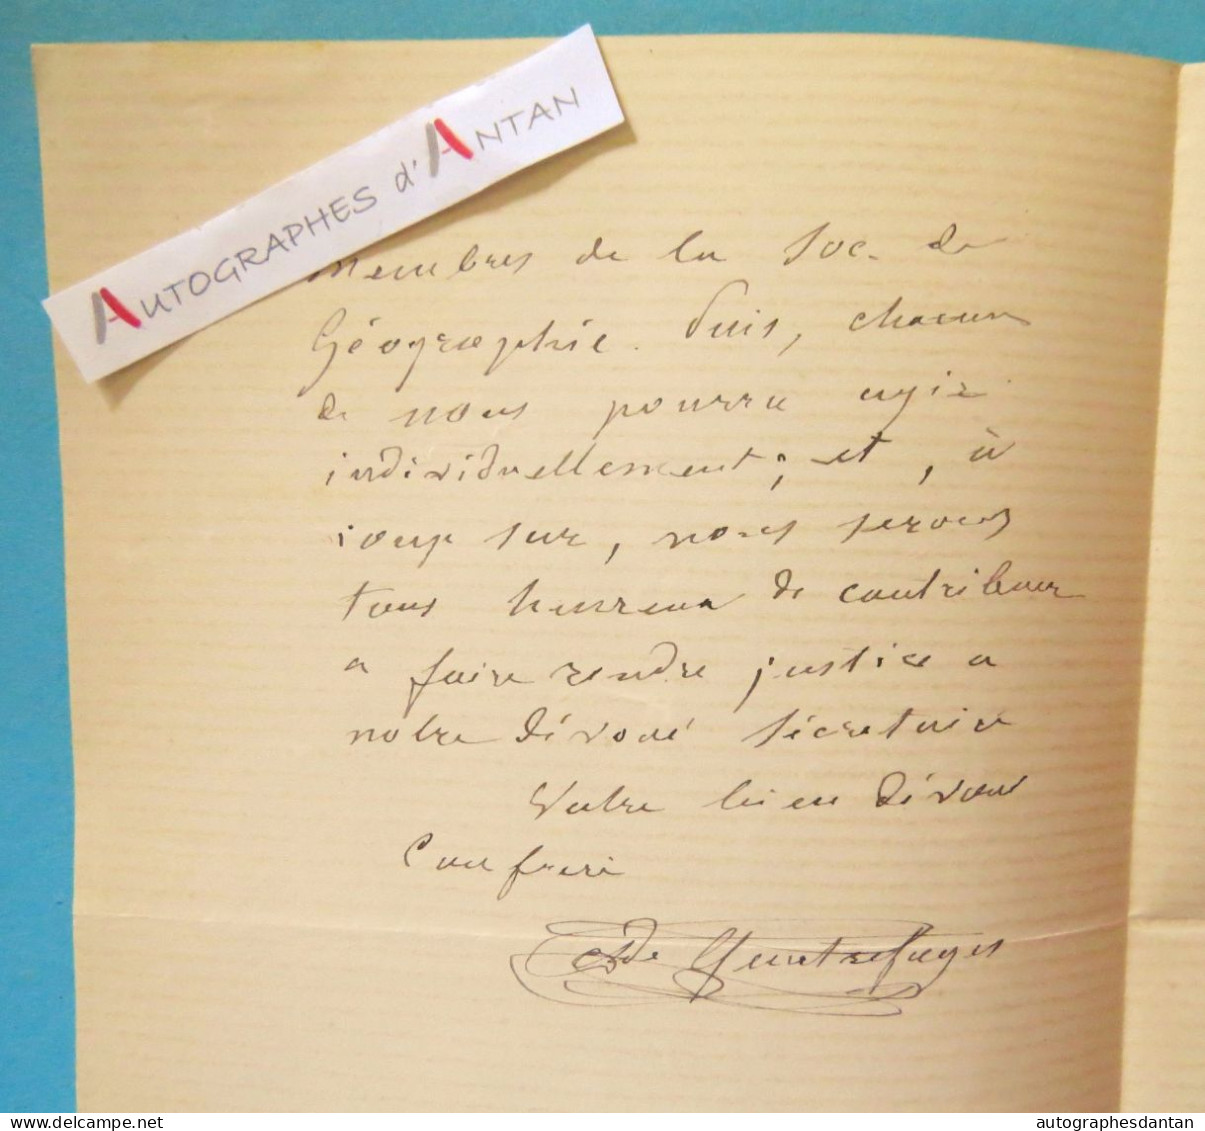 AUTOGRAPHES d'ANTAN
membres de la Soc. de
Géographie. Puis, chacun
de nous pourra agir
individuellement ; et, à
coup sur, nous serons
tous heureux de contribuer
a faire rendre justice a
notre dévoué sécretaire
Votre bien dévoué
Confrere
de
delcampe.net
autographesdantan